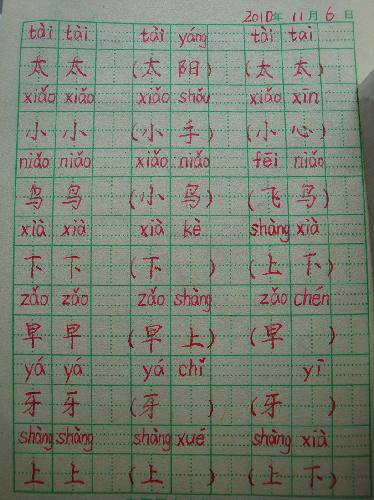 2010年 11月 6日
tài tài tài yáng tài tai
太 太 (太 阳) (太 太)
xiǎo xiǎo xiǎo shǒu xiǎo xīn
小 小 (小 手) (小 心)
niǎo niǎo xiǎo niǎo fēi niǎo
鸟 鸟 (小 鸟) (飞 鸟)
xià xià xià kè shàng xià
下 下 (下 ) (上 下)
zǎo zǎo zǎo shàng zǎo chén
早 早 (早 上) (早 )
yá yá yá chǐ yī
牙 牙 (牙 ) (牙 )
shàng shàng shàng xué shàng xià
上 上 (上 ) (上 下)